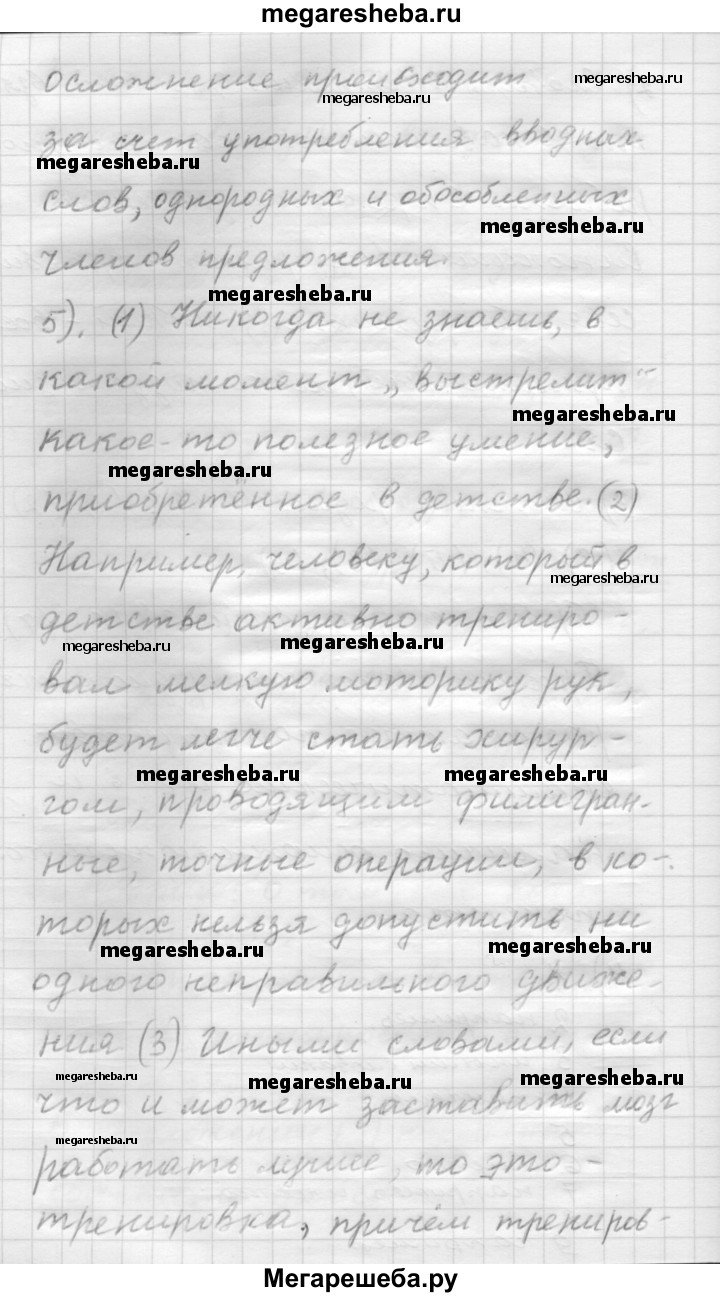 megaresheba.ru
осложнение происходит megaresheba.ru
megaresheba.ru
за счет употребления вводных
megaresheba.ru
слов, однородных и обособленных
megaresheba.ru
членов предложения.
megaresheba.ru
5). (1) Никогда не знаешь, в
какой момент „выстрелит“
megaresheba.ru
какое-то полезное умение,
megaresheba.ru
приобретённое в детстве. (2)
Например, человеку, который в
megaresheba.ru
детстве активно трениро-
megaresheba.ru megaresheba.ru
вал мелкую моторику рук,
будет легче стать хирур-
megaresheba.ru megaresheba.ru
гом, проводящим филигран-
ные, точные операции, в ко-
торых нельзя допустить ни
megaresheba.ru megaresheba.ru
одного неправильного движе-
ния (3) Иными словами, если
megaresheba.ru megaresheba.ru megaresheba.ru
что и может заставить мозг
megaresheba.ru
работать лучше, то это -
тренировка, причём трениров-
Мегарешеба.ру